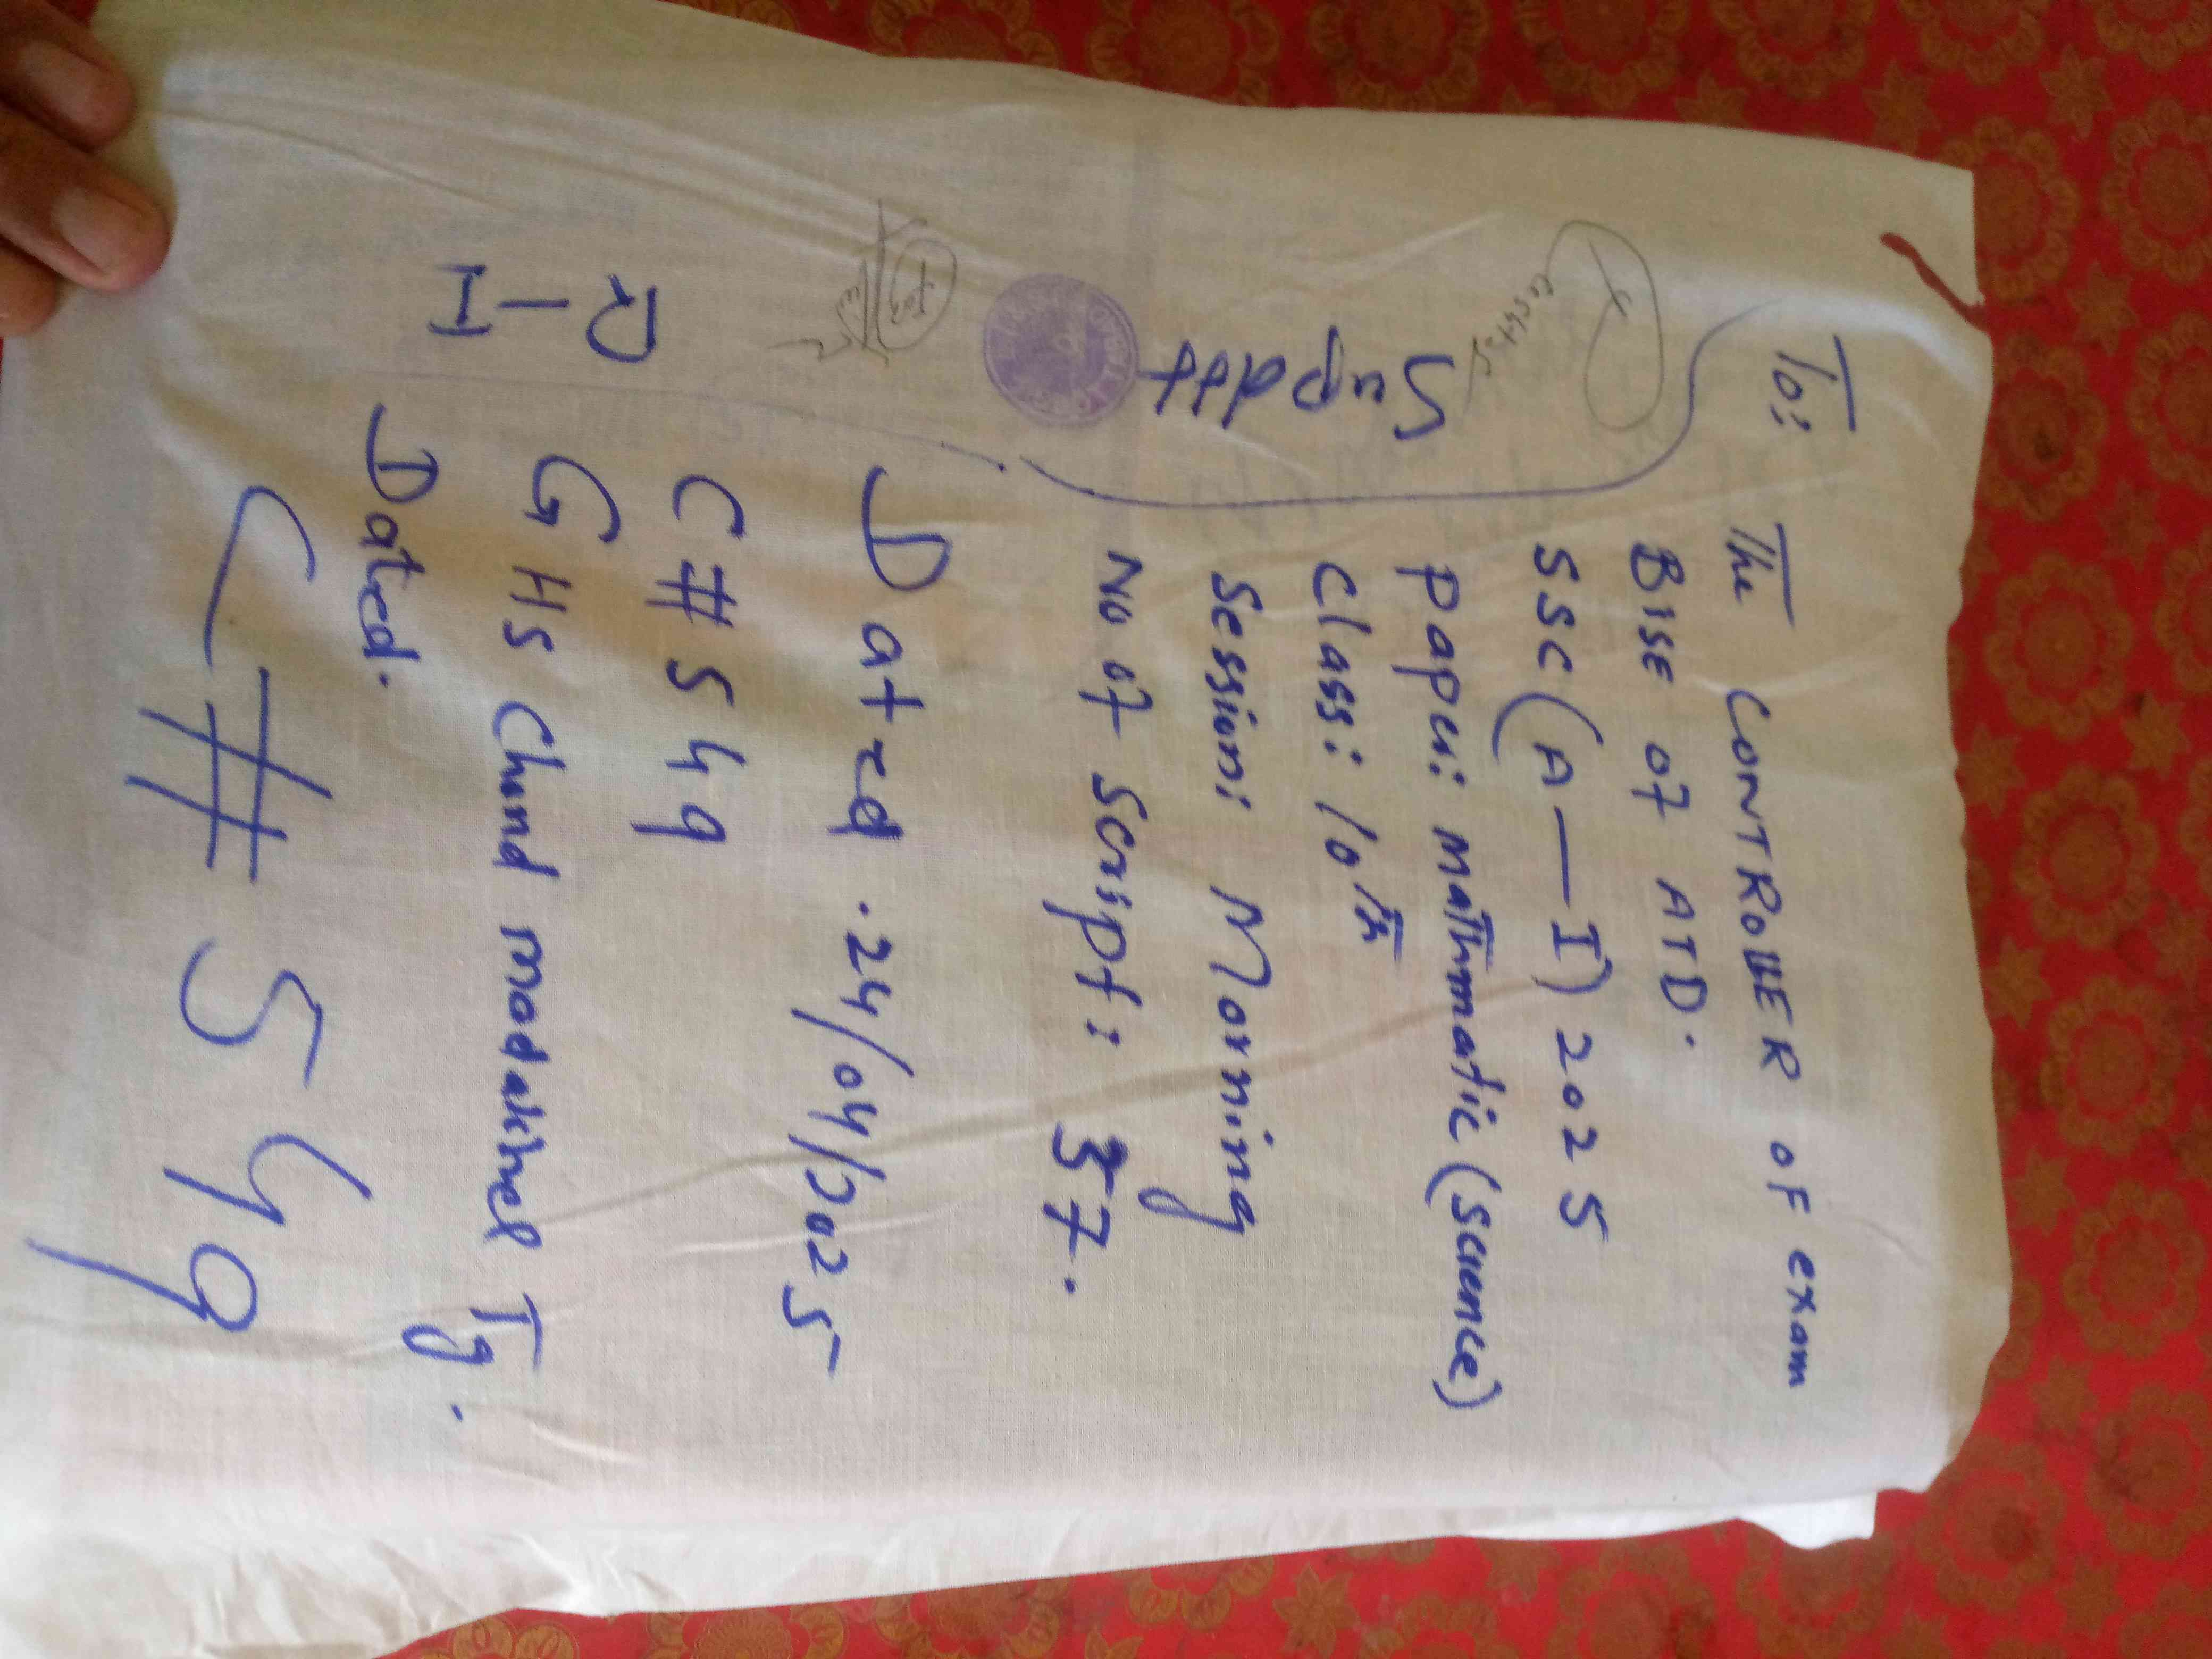 To:
The CONTROllER OF exam
BISE of ATD.
SSC (A—I) 2025
Paper: mathmatic (science)
Class: 10th
Session: Morning
No of Script: 37.
Supdtt
Dated. 24/04/2025
C# 549
R-I
GHS Chand
Tg.
Dated.
C# 549